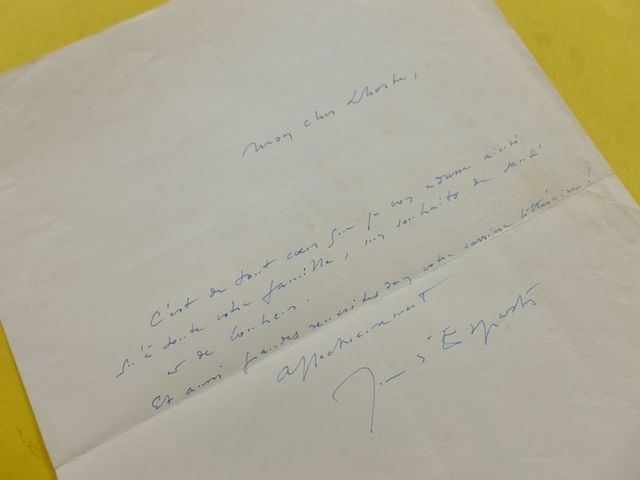 Mon cher Lhoste,
C'est de tout cœur que je vous adresse ainsi
qu'à toute votre famille, mes souhaits de santé
et de bonheur.
Et aussi grandes réussites dans votre carrière littéraire !
Affectueusement